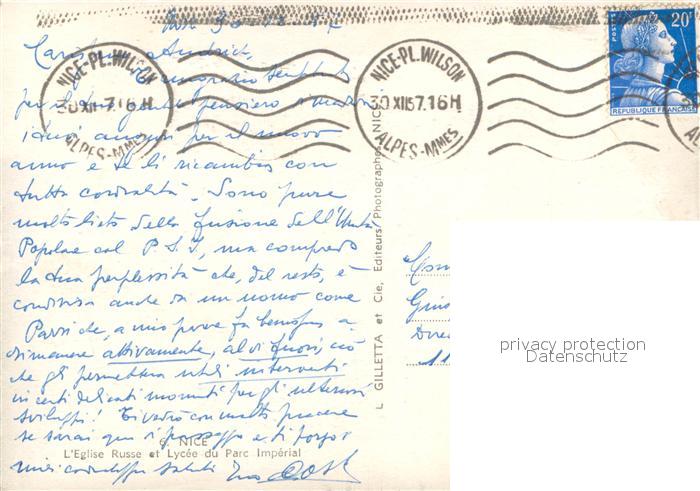 Nice 30-12-57
Carissimo
NICE-PL. WILSON
30 XII 57. 16 H
ALPES-MMES
NICE-PL. WILSON
30 XII 57. 16 H
ALPES-MMES
POSTES
20F
REPUBLIQUE FRANÇAISE
per il pensiero
auguri per il nuovo
anno e te li ricambio con
tutta cordialità. Sono pure
molto lieto della fusione dell'Unità
Popolare col P.S.I, ma comprendo
la tua perplessità che, del resto, è
condivisa anche da un uomo come
Parri che, a mio parere fa benissimo a
rimanere attivamente, al di fuori, ciò
che gli permetterà utili interventi
in certi delicati momenti per gli ulteriori
sviluppi! Ti vedrò con molto piacere
se sarai qui di passaggio e ti porgo i
miei cordialissimi saluti
6. NICE
L'Eglise Russe et Lycée du Parc Impérial
L. GILLETTA et Cie, Editeurs Photographes, NICE
Dire
11
privacy protection
Datenschutz